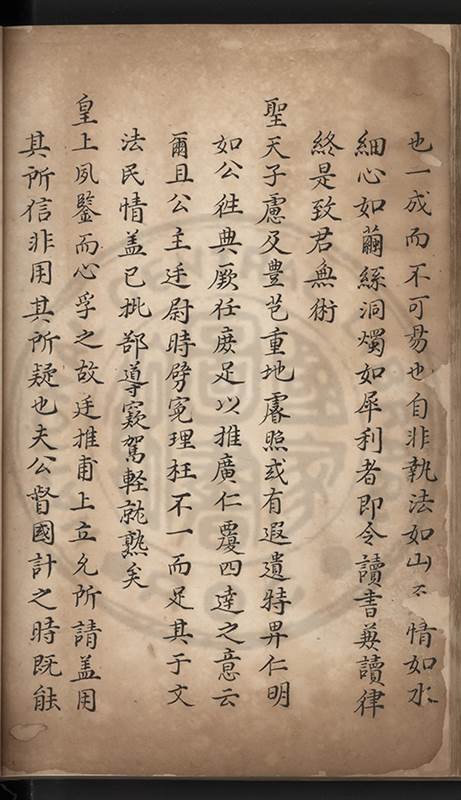 也一成而不可易也自非執法如山不情如水
細心如繭絲洞燭如犀利者即令讀書兼讀律
終是致君無術
聖天子慮及豊芑重地廑照或有遐遺特畀仁明
如公往典厥任庶足以推廣仁覆四達之意云
爾且公主廷尉時劈冤理枉不一而足其于文
法民情盖已批郤導窽駕輕就熟矣
皇上夙鑒而心孚之故廷推甫上立允所請盖用
其所信非用其所疑也夫公督國計之時既能